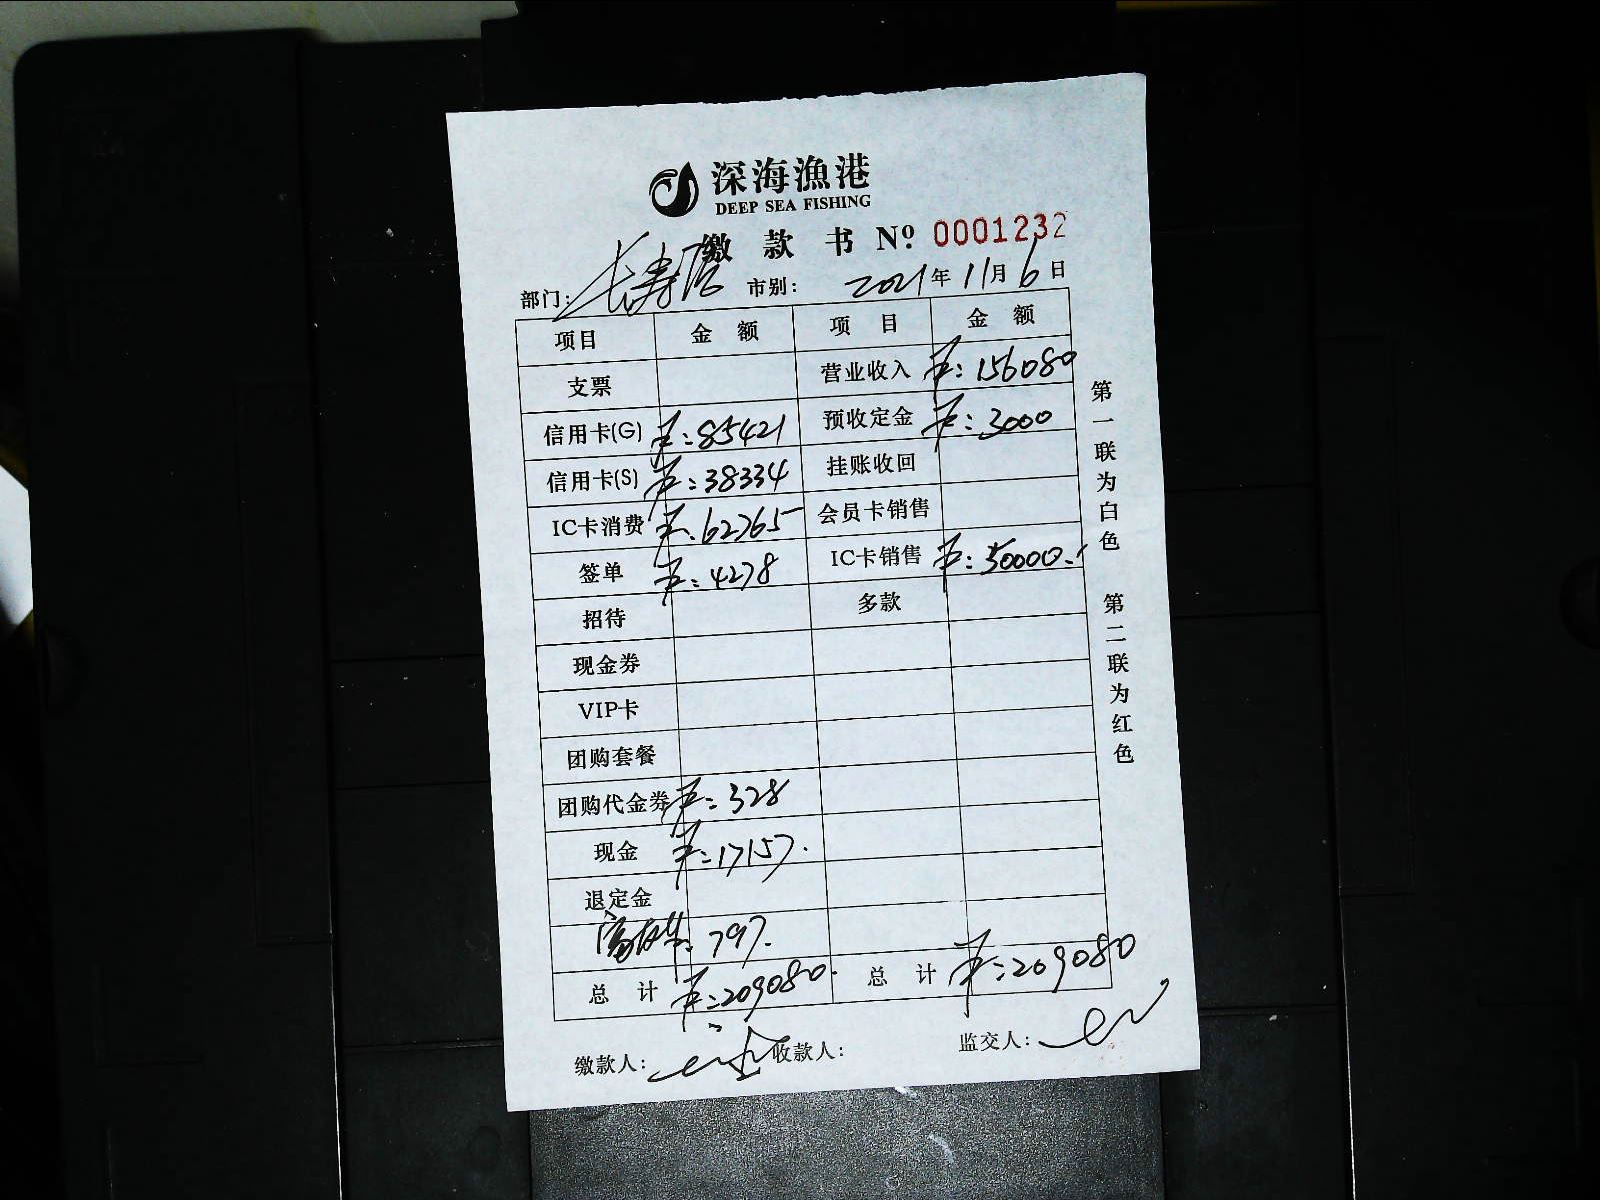 深海漁港
DEEP SEA FISHING
缴款书 Nº 0001232
部门: 长寿店 市别: 2021年11月6日
项目 金额 项目 金额
支票 营业收入 ¥:156080
信用卡(G) ¥:85421 预收定金 ¥:3000
信用卡(S) ¥:38334 挂账收回
IC卡消费 ¥:62765 会员卡销售
签单 ¥:4278 IC卡销售 ¥:50000.
招待 多款
现金券
VIP卡
团购套餐
团购代金券 ¥:328
现金 ¥:17157.
退定金
797.
总计 ¥:209080. 总计 ¥:209080
缴款人: 收款人: 监交人:
第一联为白色 第二联为红色